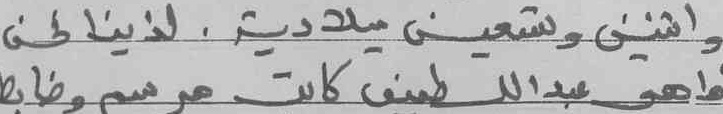 واثنين وتسعين ميلادية . لدينا لحن
ما هو عبد اللطيف كانت مرسم وضابط